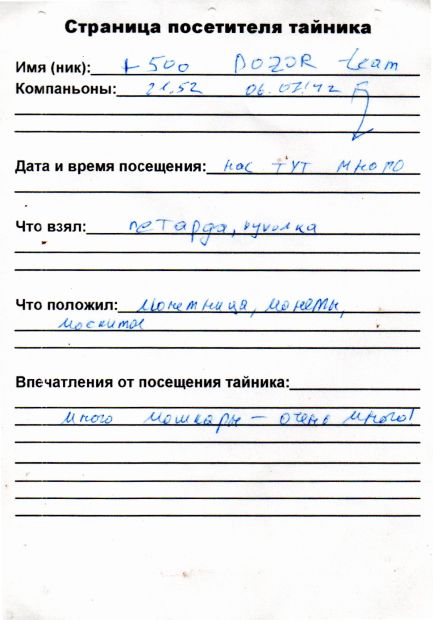 Страница посетителя тайника
Имя (ник): +500 DOZOR team
Компаньоны: 21.52 06.07.12
Дата и время посещения: нас тут много
Что взял: петарда, куколка
Что положил: монетница, монеты,
москитос
Впечатления от посещения тайника:
много мошкары – очень много!